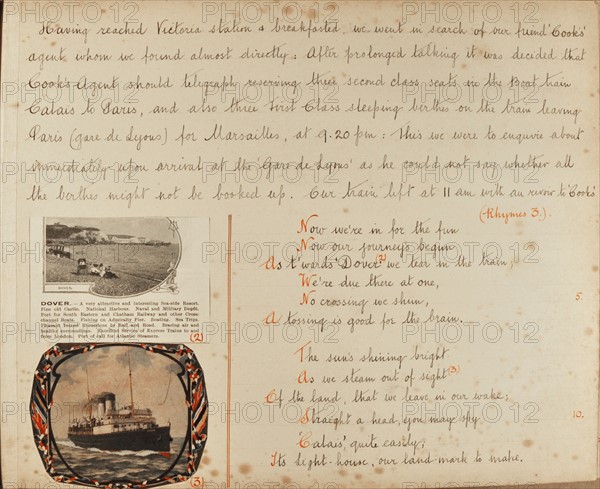 Having reached Victoria station & breakfasted, we went in search of our friend 'Cooks'
agent whom we found almost directly: After prolonged talking it was decided that
Cook's Agent should telegraph reserving three second class seats in the Boat train
Calais to Paris, and also three First Class sleeping berthes on the train leaving
Paris (gare de Lyons) for Marsailles, at 9.20 pm: This we were to enquire about
immediately upon arrival at the 'Gare de Lyons' as he could not say whether all
the berthes might not be booked up. Our train left at 11 am with au revoir to 'Cooks'
(Rhymes 3.)
Now we're in for the fun
Now our journey's begun
As t'wards 'Dover' (2) we tear in the train;
We're due there at one,
No crossing we shun, 5.
A tossing is good for the brain.
The sun's shining bright
As we steam out of sight (3)
Of the land, that we leave in our wake;
Straight a head, you may spy 10.
'Calais', quite easily;
Its light-house, our land mark to make.
DOVER.
DOVER.—A very attractive and interesting Sea-side Resort.
Fine old Castle. National Harbour. Naval and Military Depôt.
Port for South Eastern and Chatham Railway and other Cross-
channel Boats. Fishing on Admiralty Pier. Boating. Sea Trips.
Channel Tours. Excursions by Rail and Road. Bracing air and
healthy surroundings. Excellent Service of Express Trains to and
from London. Port of call for Atlantic Steamers.
(2)
(3)
PHOTO12